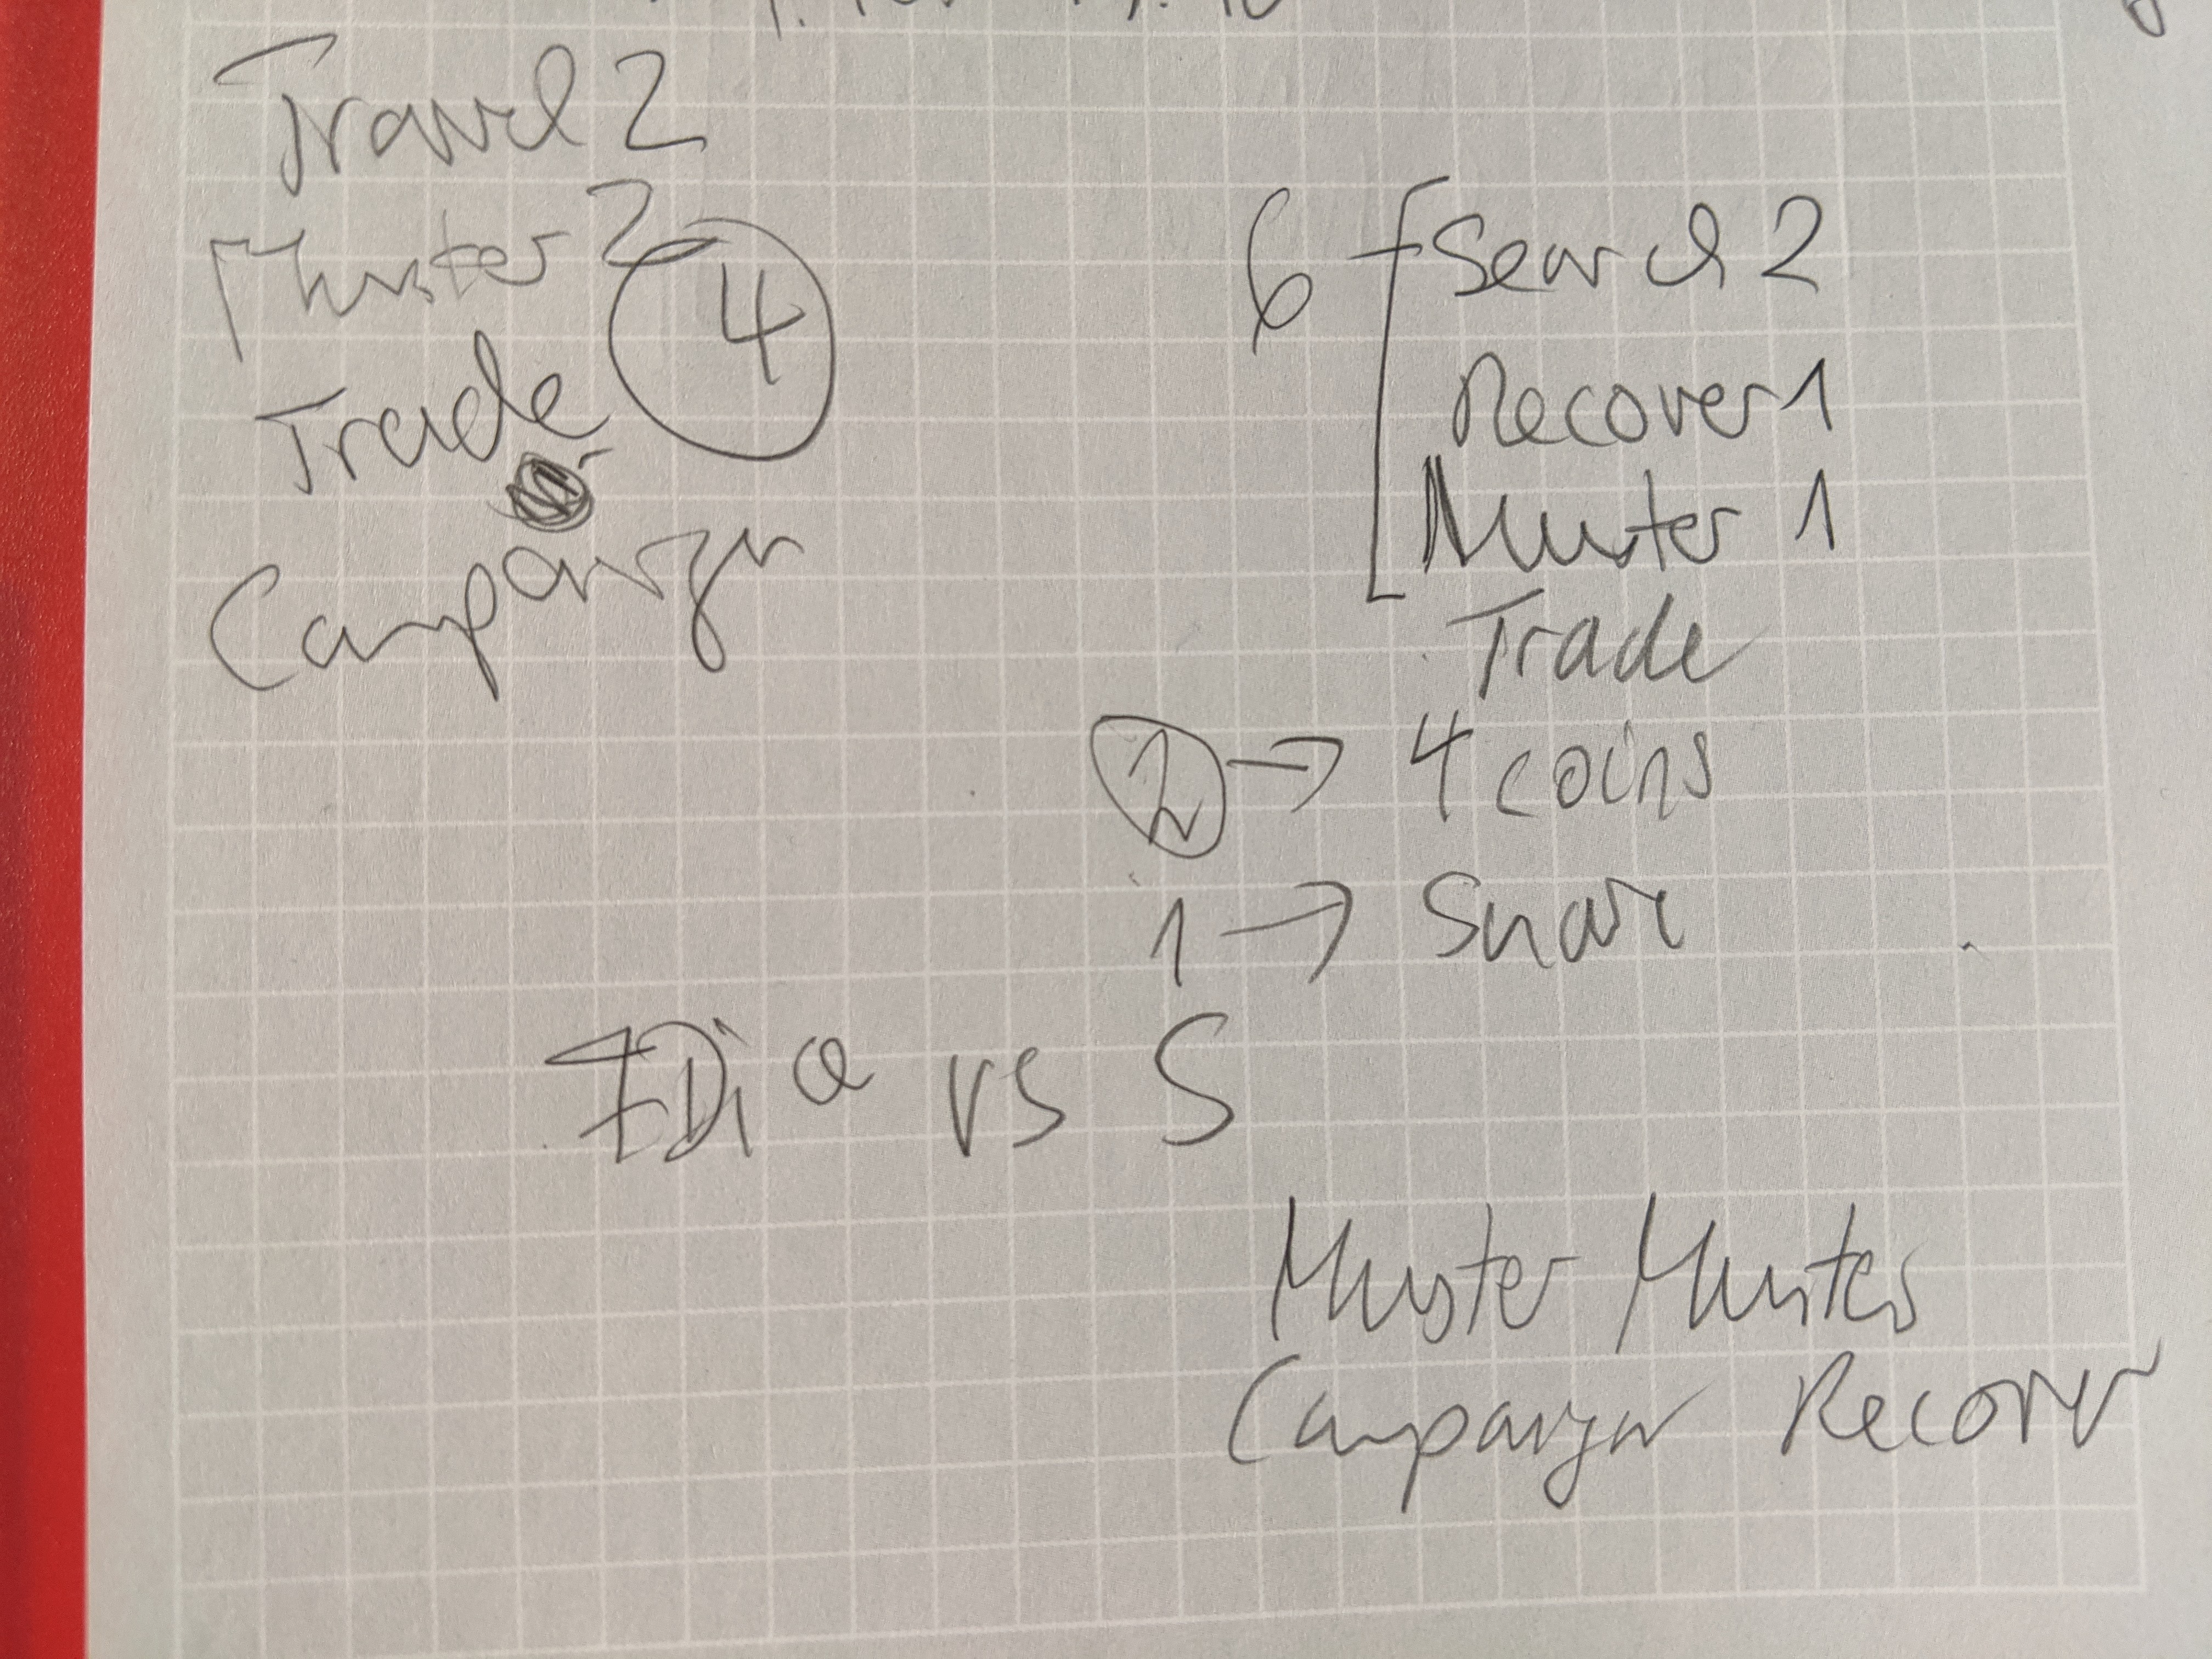 Travel 2
Muster 2
4
Trade
Campaign
6 Search 2
Recover 1
Muster 1
Trade
2 → 4 coins
1 → Snare
vs S
Muster Muster
Campaign Recover